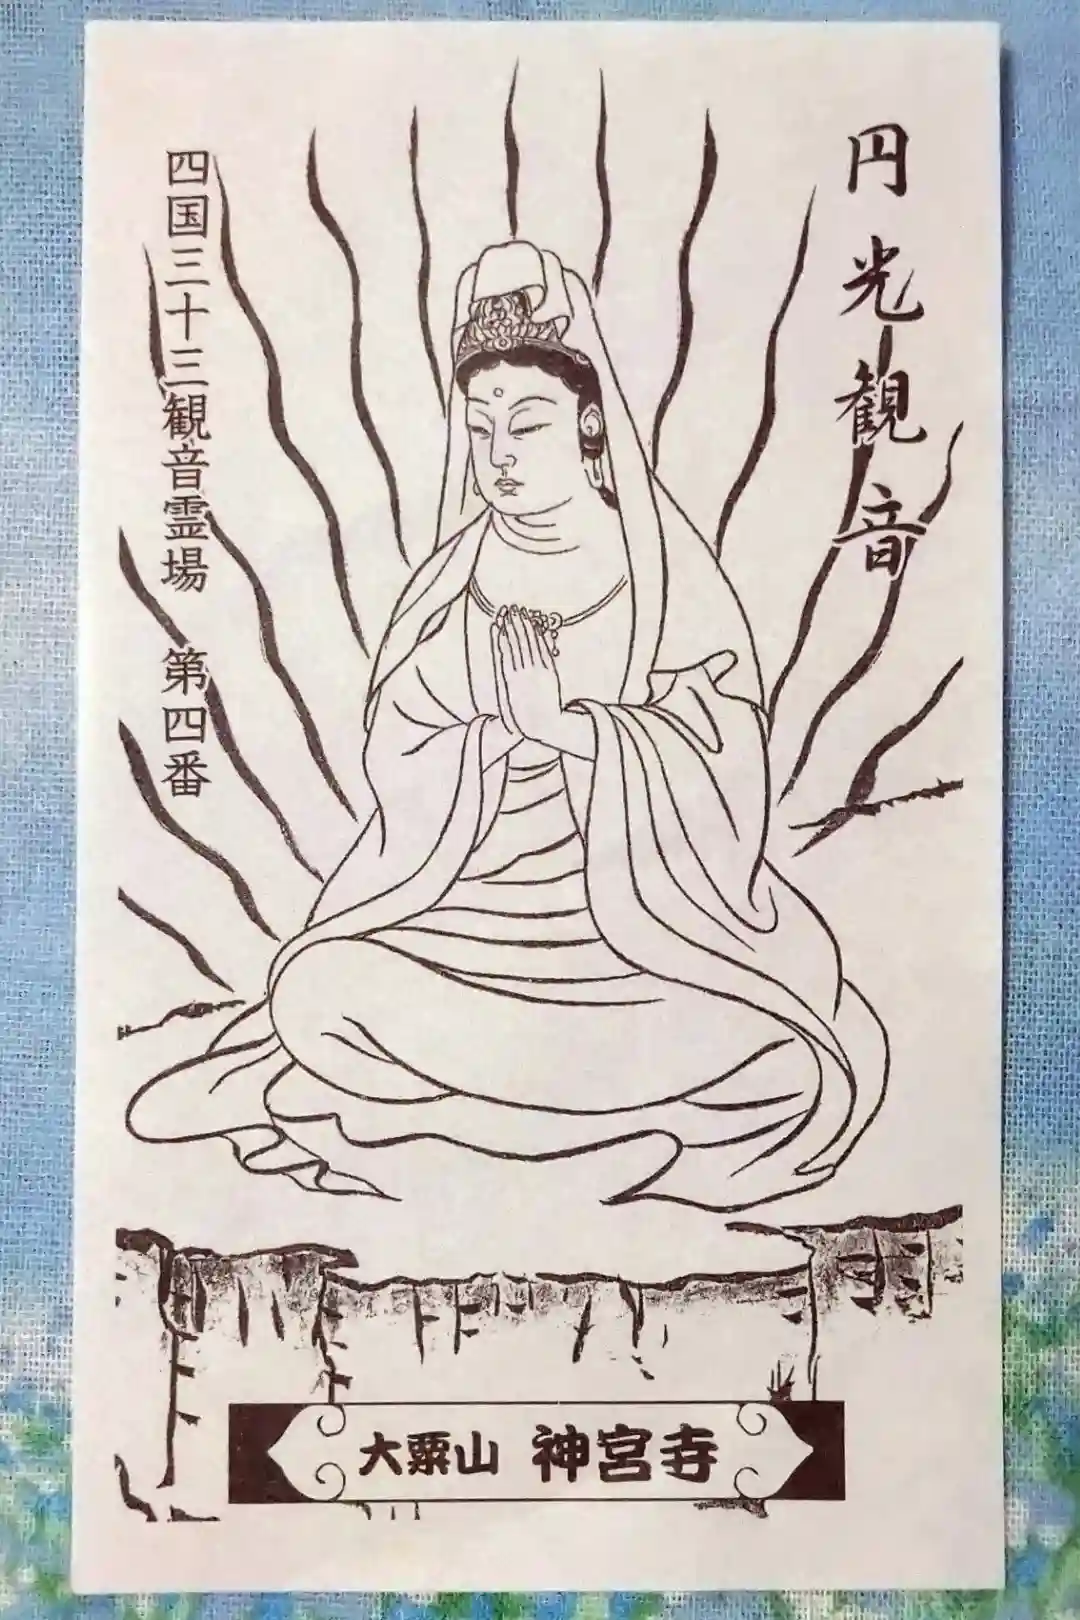 円光観音
四国三十三観音霊場 第四番
大粟山 神宮寺